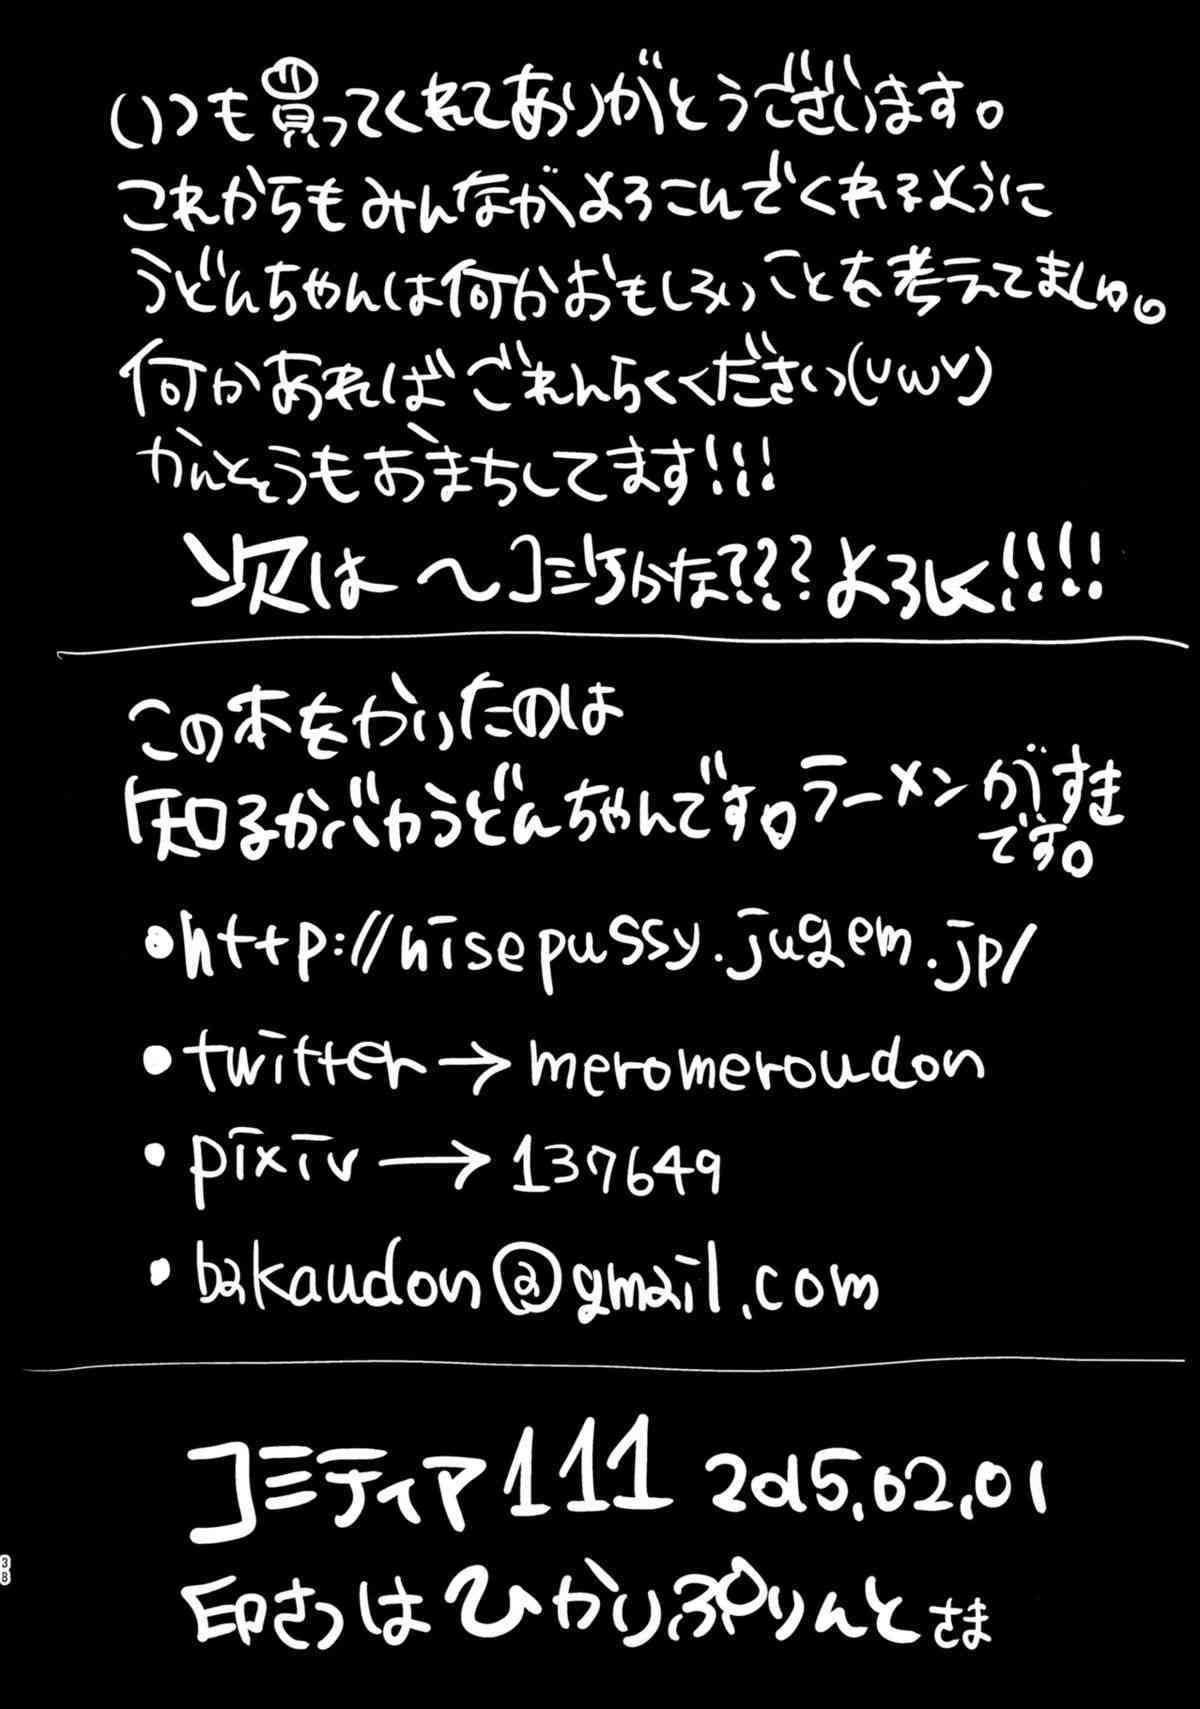 いつも買ってくれてありがとうございます。
これからもみんながよろこんでくれるように
うどんちゃんは何かおもしろいことを考えてましゅ。
何かあればごれんらくください(UωU)
かんそうもおまちしてます!!!
次は〜コミケかな???よろしく!!!!
この本をかいたのは
知るかバカうどんちゃんです。ラーメンがすき
です。
●http://nisepussy.jugem.jp/
●twitter→meromeroudon
・pixiv→137649
・bakaudon@gmail.com
コミティア111 2015.02.01
印さつはひかりぷりんとさま
38